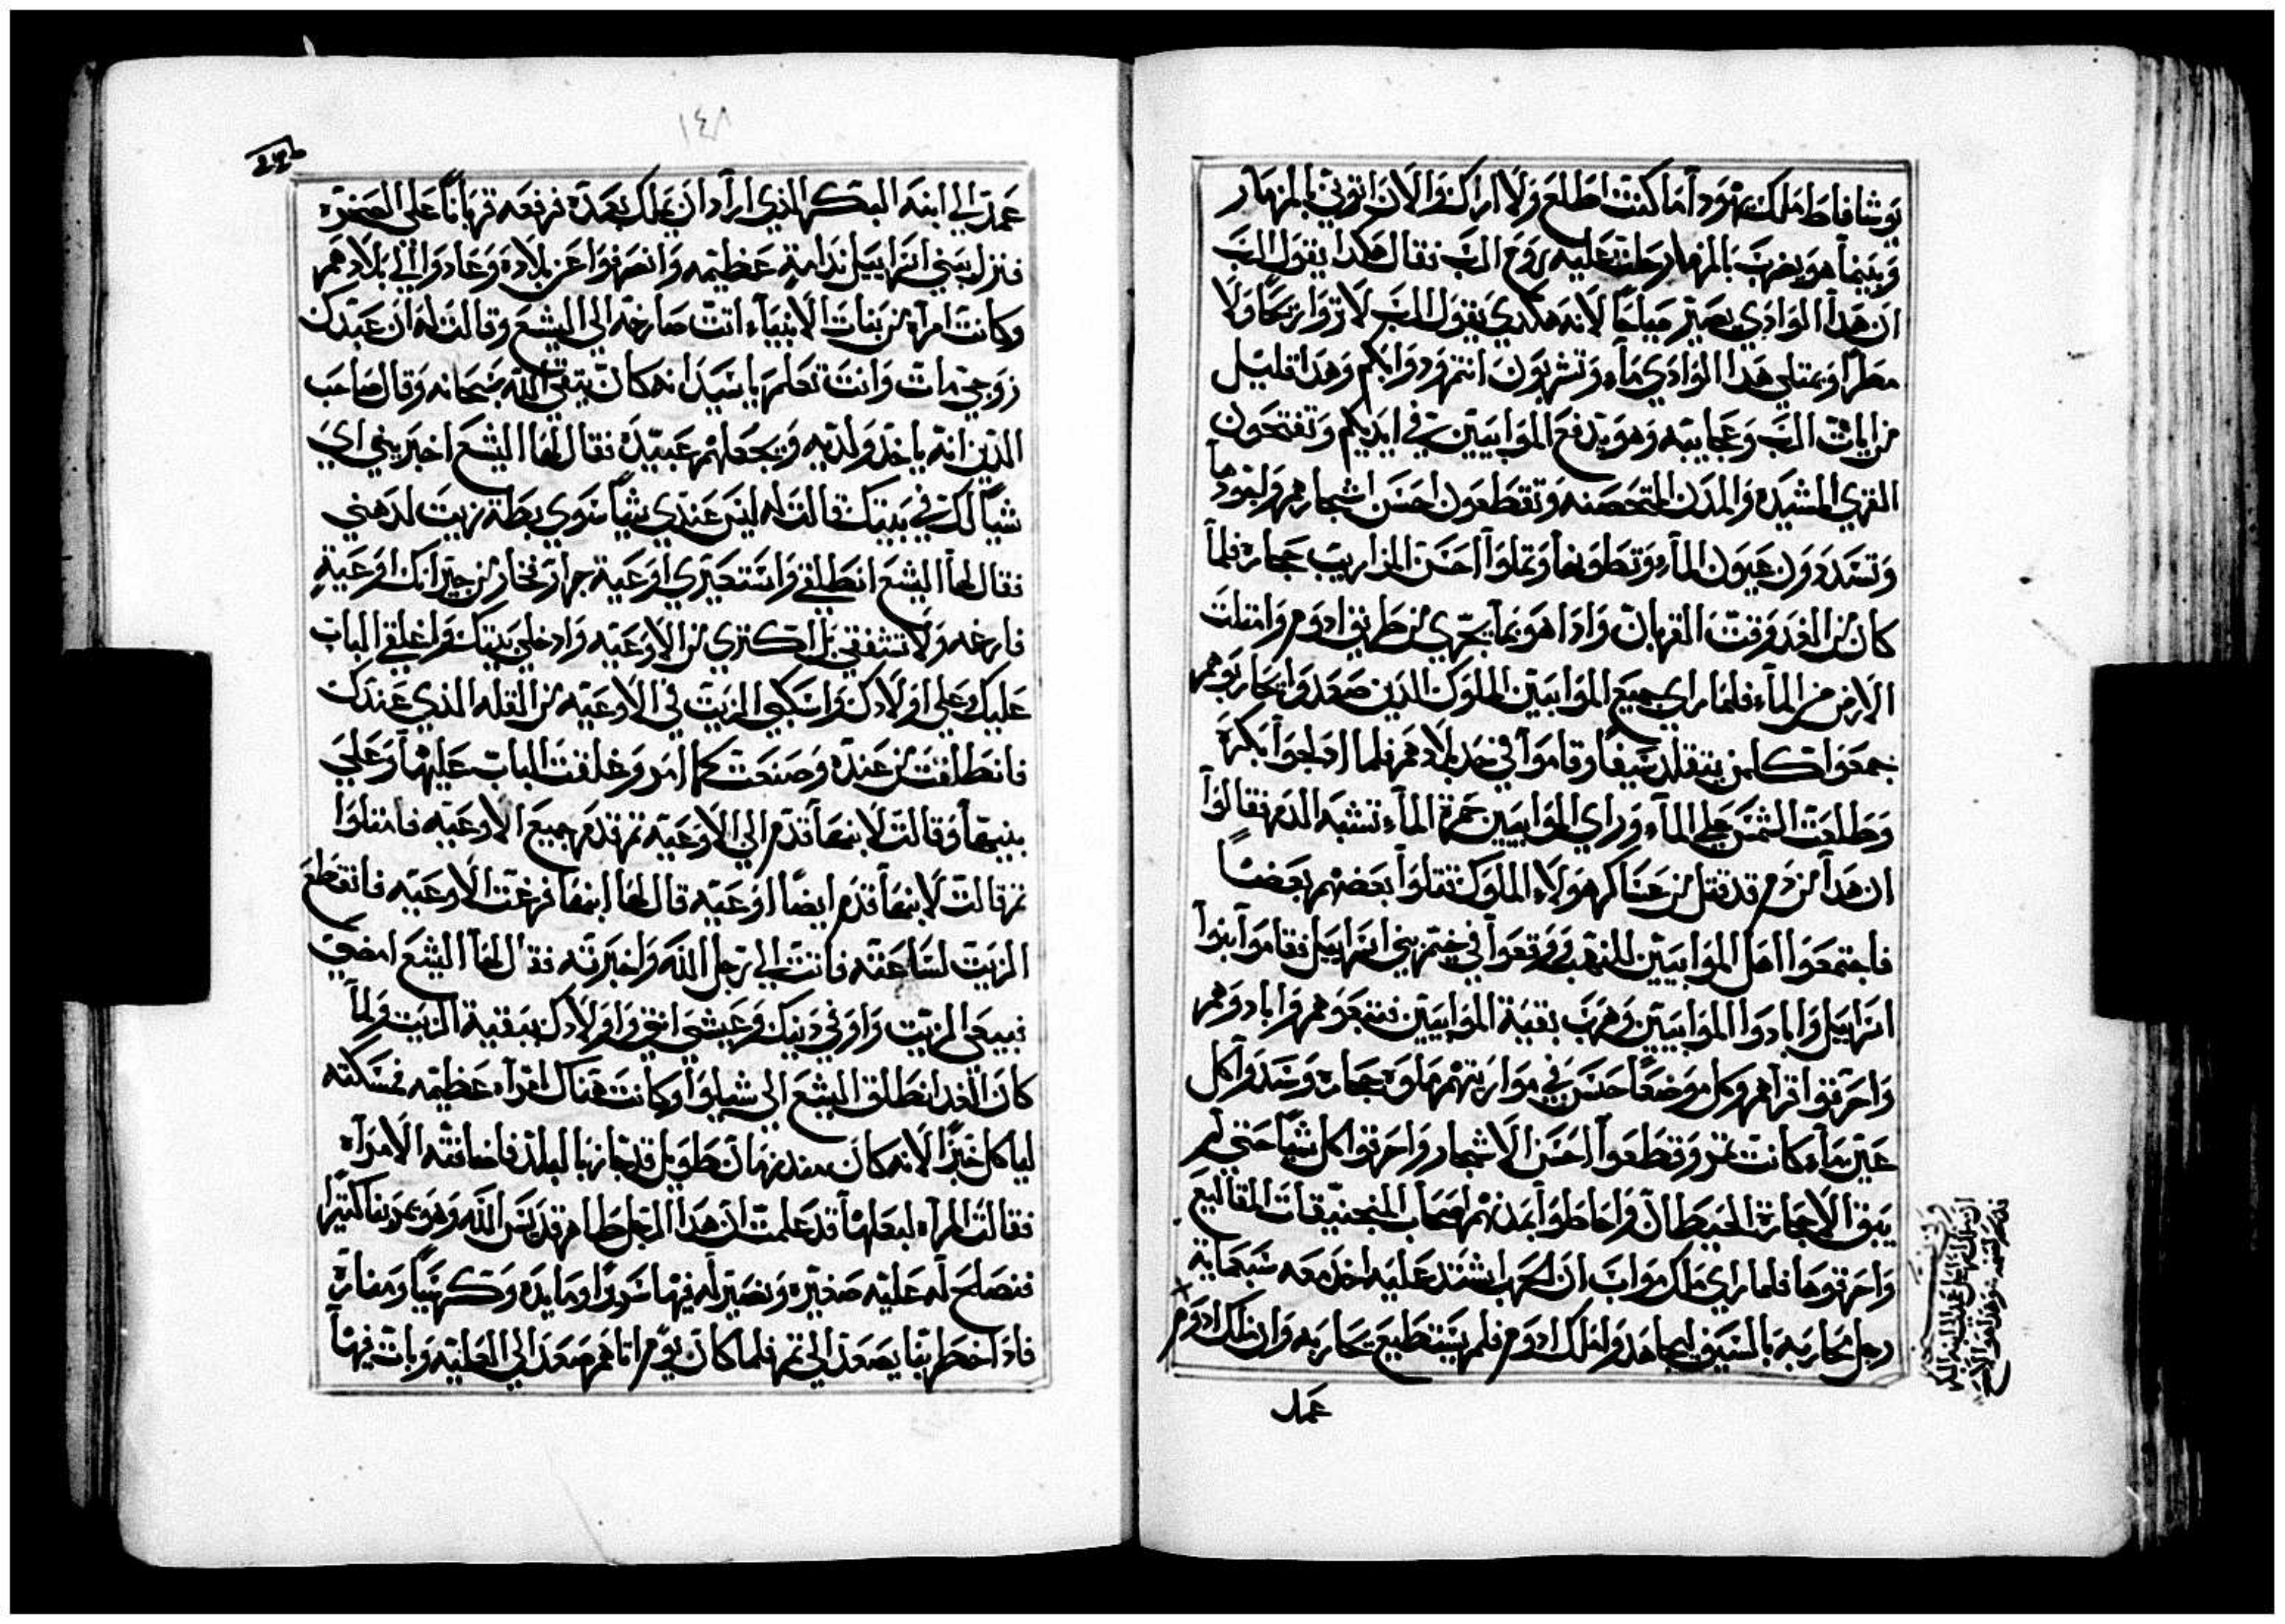 يوشافاط ملك يهودا ما كنت اطلع ولا اراك والان اتوني بالمزمار
وبينما هو يضرب بالمزمار حلت عليه روح الرب فقال هكدا يقول الرب
ان هدا الوادي يصير جباجبا لانه هكدي يقول الرب لا تروا ريحا ولا
مطرا ويمتلي هدا الوادي ماء وتشربون انتم ودوابكم وهدا قليل
من ايات الرب وعجايبه وهو يدفع الموابيين في ايديكم وتفتحون
القري المشيده والمدن المتحصنه وتقطعون احسن اشجارهم
وتسددون عيون الماء وتملوا احسن المزاريب حجاره فلما
كان من الغد وقت القربان وادا هو بما يجري من طريق ادوم وامتلت
الارض من الماء فلما راي جميع الموابيين الملوك الدين صعدوا يحاربوهم
جمعوا كلمن يتقلد سيفا وقاموا في حد بلادهم فلما ادلجوا بكرة
وطلعت الشمس علي الماء وراي الموابيين حمرة الماء تشبه الدم فقالوا
ان هدا من دم قد قتل من عساكر هولاء الملوك قتلوا بعضهم بعضا
فاجتمعوا اهل الموابيين للنهب ووقعوا في خيم بني اسراييل فقاموا بنوا
اسراييل وابادوا الموابيين وهرب بقية الموابيين فتبعوهم وابادوهم
واحرقوا قراهم وكل موضعا حسن في مواريثهم ملوه حجاره وسدوا كل
عين ماء كانت تم وقطعوا احسن الاشجار واحرقوا كل شيا حتي لم
يبق الا حجارة الحيطان واحاطوا بمدنهم اصحاب المنجنيقات المقاليع
واحرقوها فلما راي ملك مواب ان الحرب اشتد عليه اخد معه سبعماية
رجل محاربه بالسيف ليجاهدوا ملك ادوم فلم يستطيع يحاربه وان ملك ادوم
عمد
١٤٨
عمد الي ابنه البكر الذي اراد ان يملك بعده فرفعه قربانا علي الصخرة
فنزل ببني اسراييل ندامة عظيمه وانصرفوا عن بلاده وعادوا الي بلادهم
وكانت امراه من بنات الانبياء اتت صارخه الي اليشع وقالت له ان عبدك
زوجي مات وانت تعلم يا سيد انه كان يتقي الله سبحانه وقال صاحب
الدين انه ياخد ولديه ويجعلهم عبيده فقال لها اليشع اخبريني اي
شيا لك في بيتك قالت له ليس عندي شيا سوي بطة زيت لدهني
فقال لها اليشع انطلقي واستعيري اوعية جرار فخار من جيرانك اوعية
فارغه ولا تشفقي بل اكتري من الاوعيه وادخلي بيتك واغلقي الباب
عليك وعلي اولادك واسكبي الزيت في الاوعيه من القله الذي عندك
فانطلقت من عنده وصنعت كما امر وغلقت الباب عليها وعلي
بنيها وقالت لابنها قدم الي الاوعيه تم قدم جميع الاوعيه فامتلوا
تم قالت لابنها قدم ايضا اوعيه قال لها ابنها فرغت الاوعيه فانقطع
الزيت لساعته فاتت الي رجل الله واخبرته فقال لها اليشع امضي
نبيعي الزيت واوفي دينك وعيشي انتي واولادك ببقية الزيت ولما
كان الغد انطلق اليشع الي شيلوا وكانت هناك امراه عظيمه فمسكته
لياكل خبزا لانه كان مند زمان طويل قد جاز بالبلد فاضافته الامراه
فقالت المراه لبعلها قد علمت ان هدا الرجل طاهر قديس الله وهو يمر بنا كتيرا
فنصلح له عليه صغيره ونصير له فيها سريرا ومايده وكرسيا ومناره
فادا خطر بنا يصعد الي تم فلما كان يوم اتاهم صعد الي العليه وبات فيها